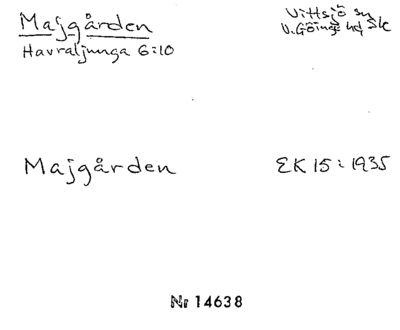 Majgården
Havraljunga 6:10
Vittsjö sn
V. Göinge hd Sk
Majgården
EK 15: 1935
Nr 14638